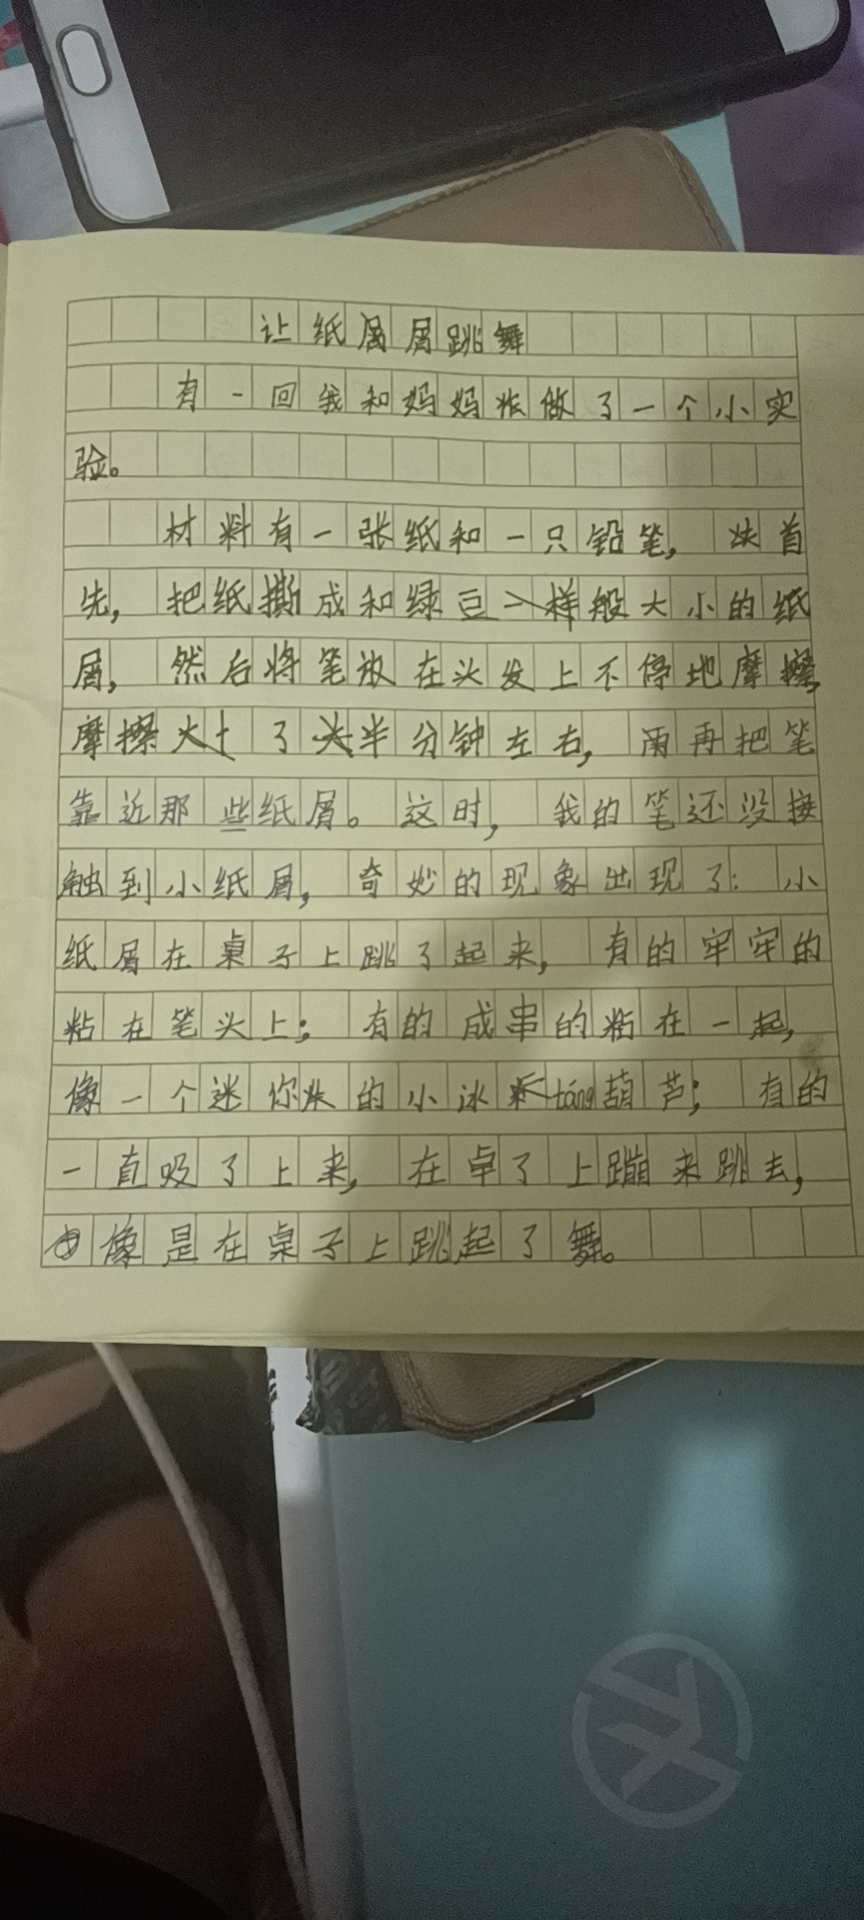 让纸屑屑跳舞
有一回我和妈妈做了一个小实
验。
材料有一张纸和一只铅笔，首
先，把纸撕成和绿豆般大小的纸
屑，然后将笔放在头发上不停地摩擦，
摩擦了半分钟左右，再把笔
靠近那些纸屑。这时，我的笔还没接
触到小纸屑，奇妙的现象出现了：小
纸屑在桌子上跳了起来，有的牢牢的
粘在笔头上；有的成串的粘在一起，
像一个迷你的小冰táng葫芦；有的
一直吸了上来，在卓了上蹦来跳去，
像是在桌子上跳起了舞。